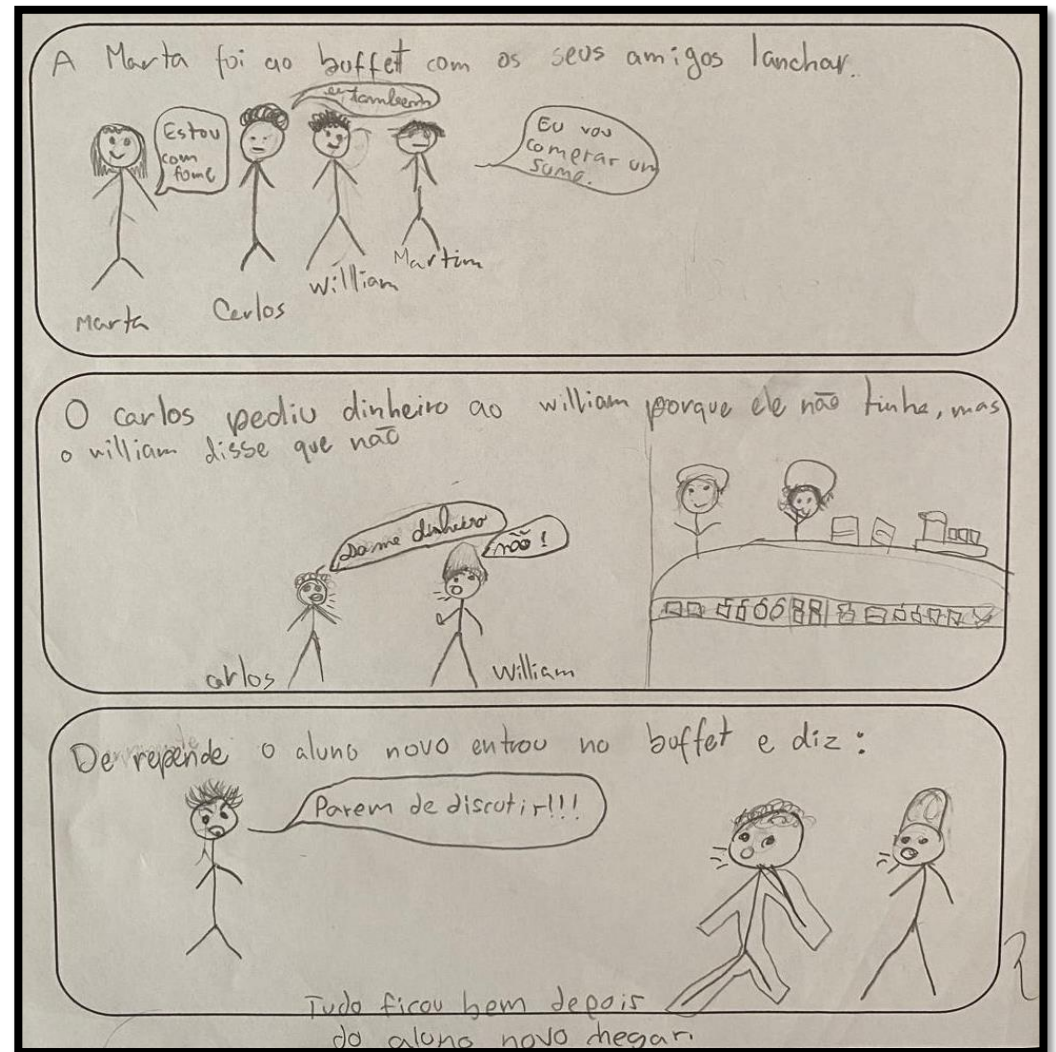 A Marta foi ao buffet com os seus amigos lanchar.
Estou
com
fome
eu também
Eu vou
comprar um
sumo.
Marta
Carlos
William
Martim
O carlos pediu dinheiro ao william porque ele não tinha, mas
o william disse que não
Da me dinheiro
não!
carlos
William
De repende o aluno novo entrou no buffet e diz:
Parem de discutir!!!
Tudo ficou bem depois
do aluno novo chegar.